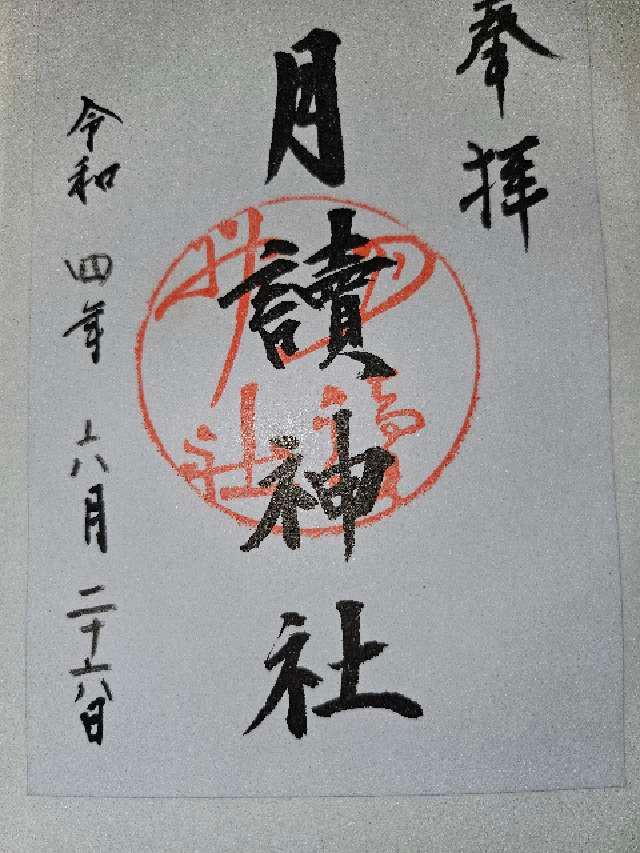 奉拝
月讀神社
令和四年六月二十六日